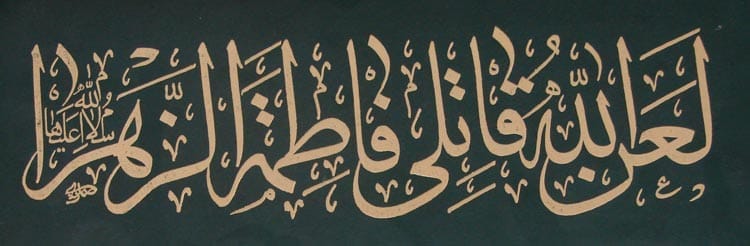 لَعَنَ اللهُ قاتِلي فاطِمَةَ الزَّهراء سَلامُ اللهِ عَلَيها